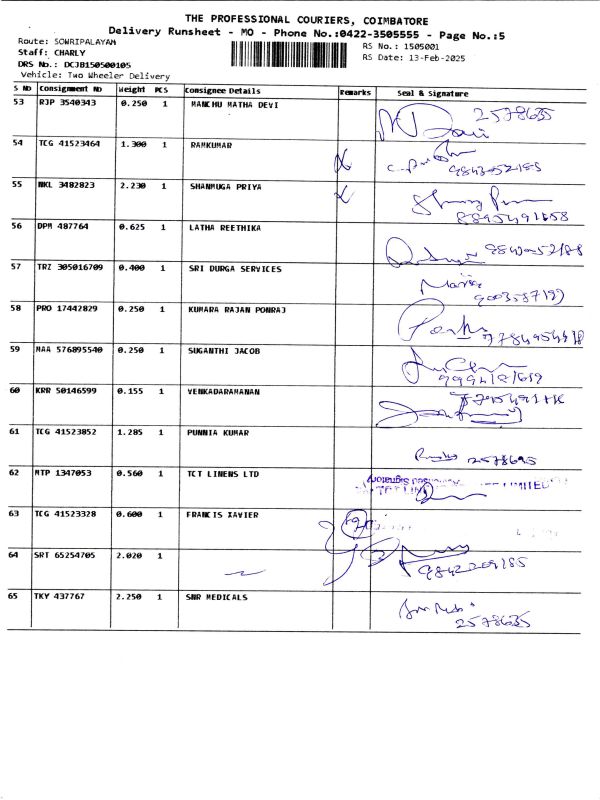 THE PROFESSIONAL COURIERS, COIMBATORE
Delivery Runsheet - MO - Phone No.:0422-3505555 - Page No.:5
Route: SOWRIPALAYAM
RS No.: 1505001
Staff: CHARLY
RS Date: 13-Feb-2025
DRS No.: DCJB150500105
Vehicle: Two Wheeler Delivery
S NO Consignment No Weight PCS Consignee Details Remarks Seal & Signature
53 RJP 3540343 0.250 1 MANCHU MATHA DEVI 2578635
54 TCG 41523464 1.300 1 RAMKUMAR
55 NKL 3482823 2.230 1 SHANMUGA PRIYA
56 DPM 487764 0.625 1 LATHA REETHIKA
57 TRZ 305016709 0.400 1 SRI DURGA SERVICES
58 PRO 17442829 0.250 1 KUMARA RAJAN PONRAJ
59 MAA 576895540 0.250 1 SUGANTHI JACOB
60 KRR 50146599 0.155 1 VENKADARAMANAN
61 TCG 41523852 1.285 1 PUNNIA KUMAR
62 MTP 1347053 0.560 1 TCT LINENS LTD LIMITED
Authorised Signatory
63 TCG 41523328 0.600 1 FRANCIS XAVIER
64 SRT 65254705 2.020 1
65 TKY 437767 2.250 1 SNR MEDICALS
2578635